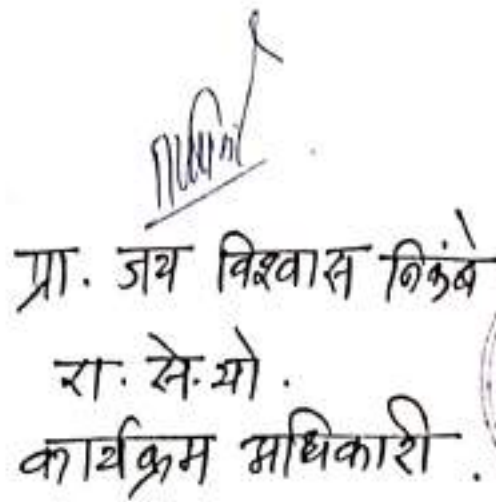 प्रा. जय विश्वास निकंबे
रा. से. यो.
कार्यक्रम अधिकारी.